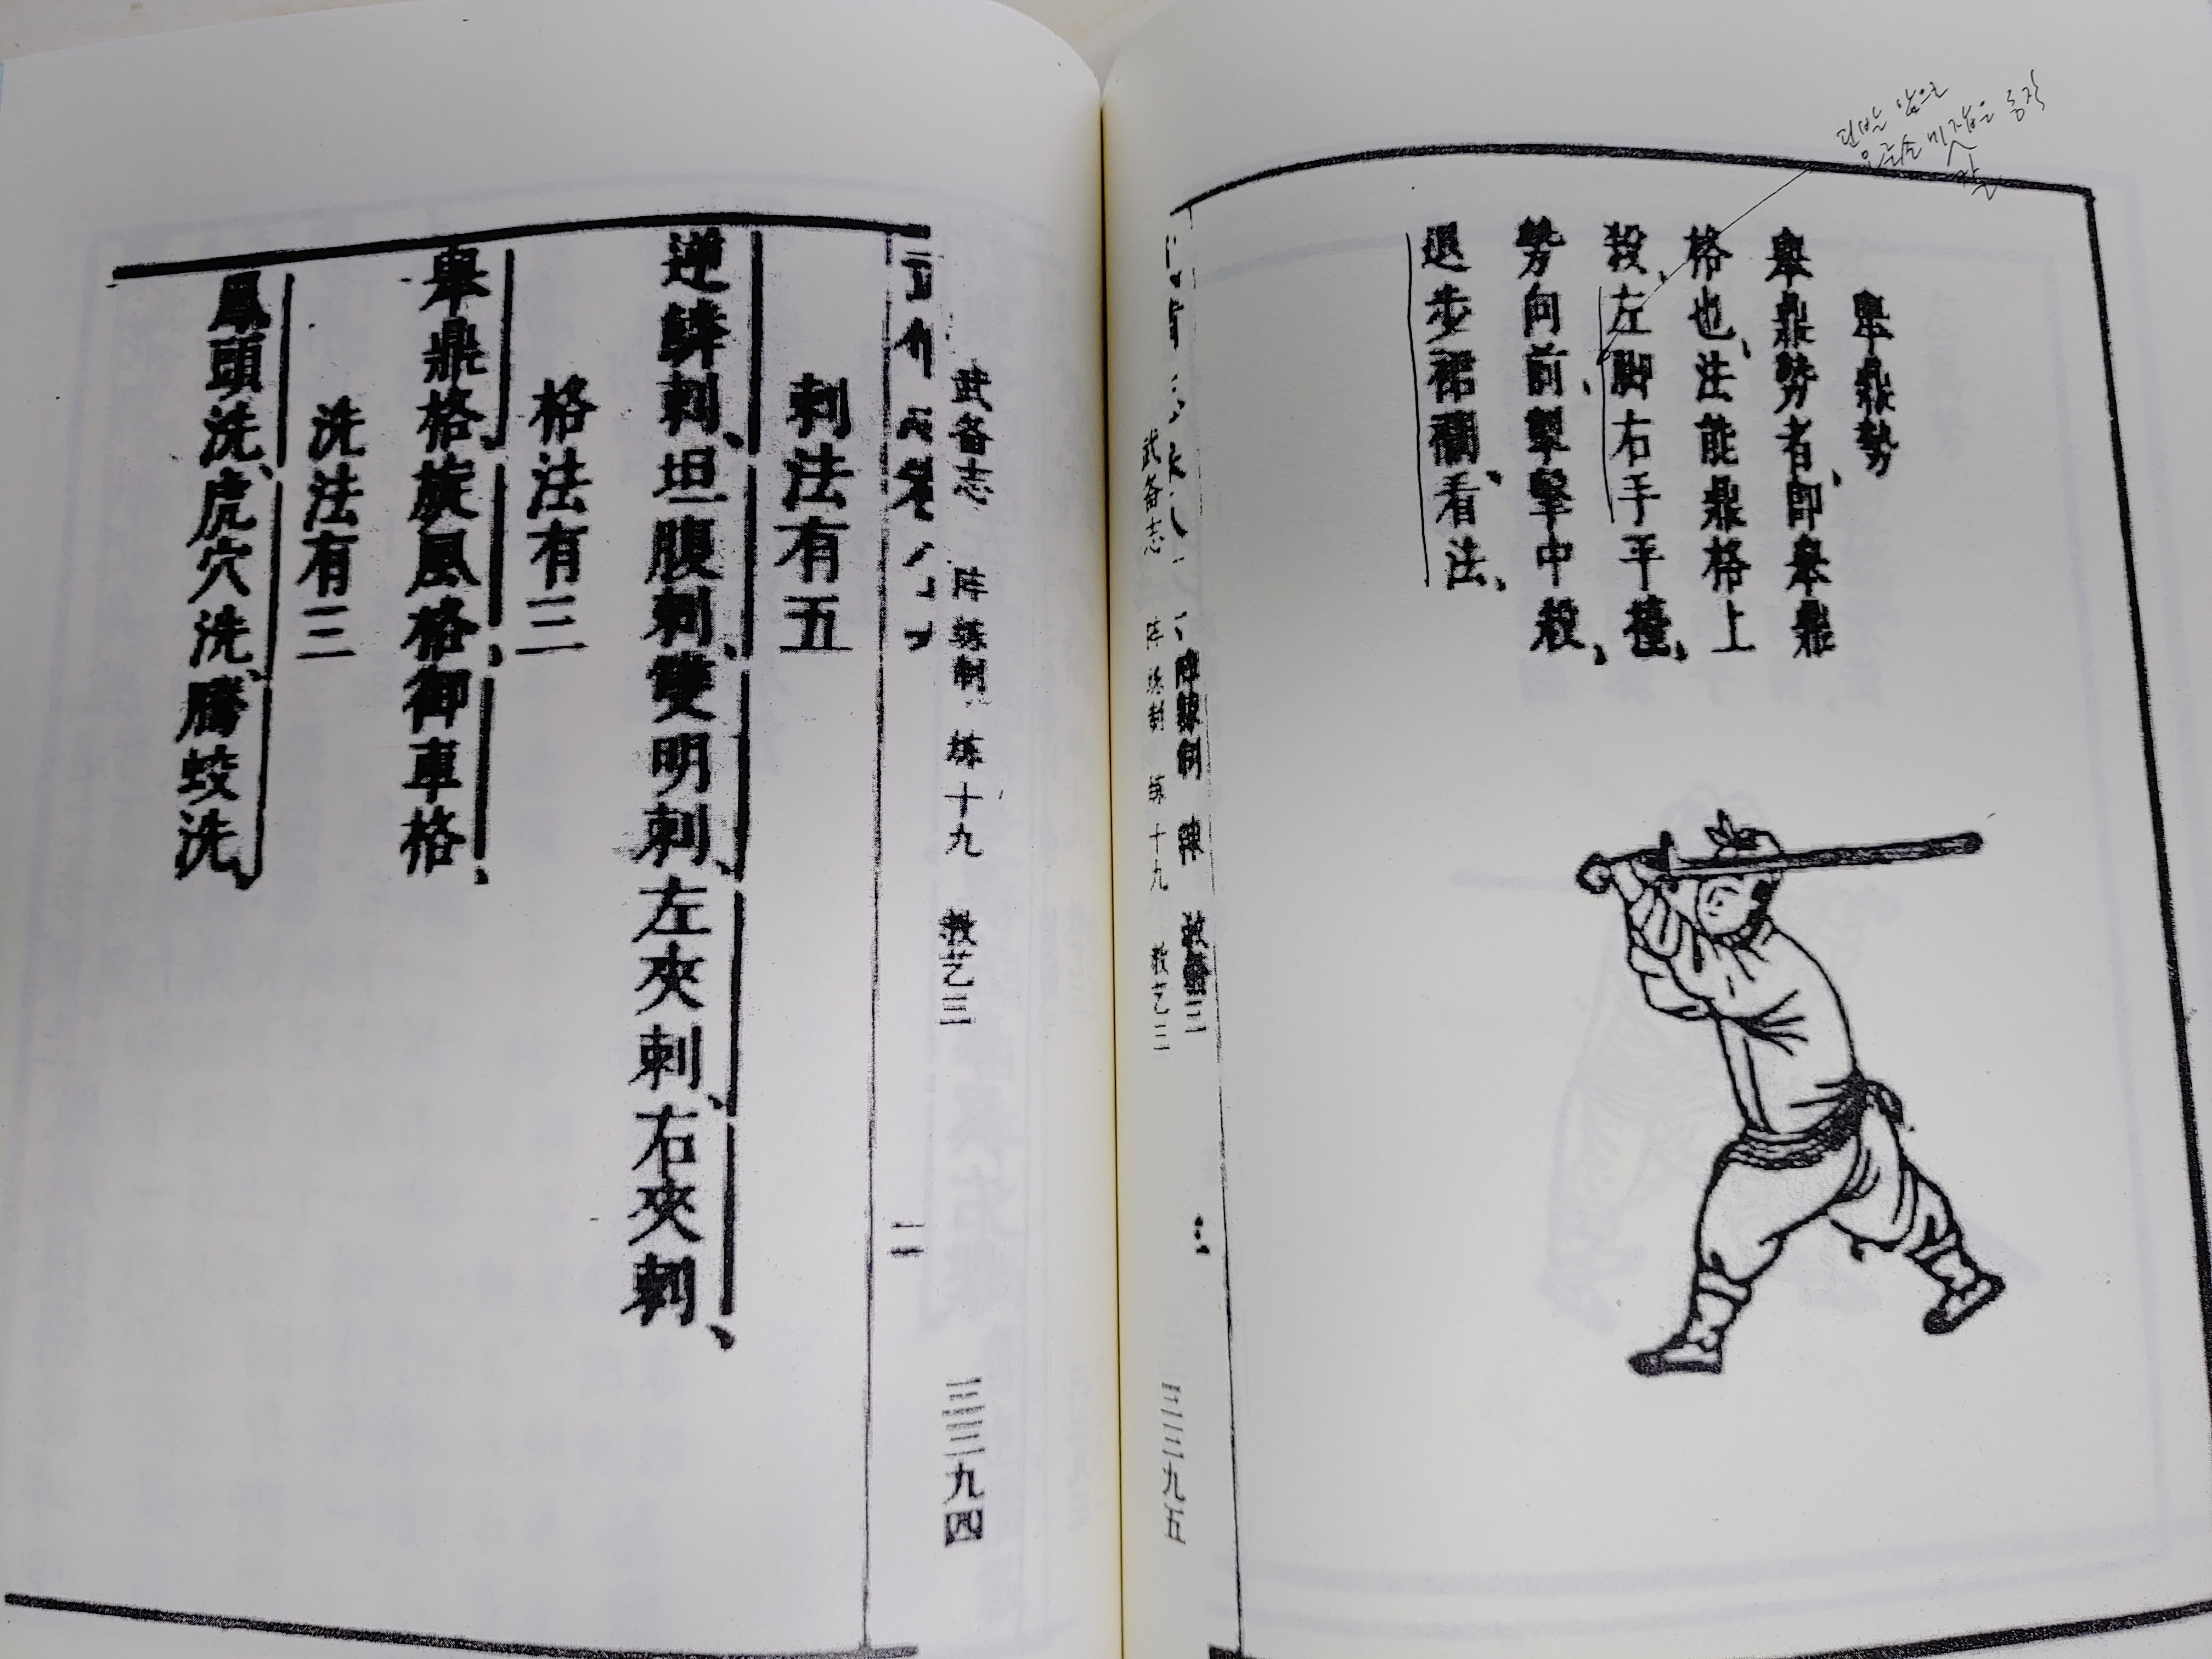 武备志 阵练制 练十九 教艺三 三三九四
二
刺法有五
逆鱗刺、坦腹刺、雙明刺、左夾刺、右夾刺、
格法有三
舉鼎格、旋風格、御車格、
洗法有三
鳳頭洗、虎穴洗、騰蛟洗、
舉鼎勢
舉鼎勢者、即舉鼎
格也、法能鼎格上
殺、左脚右手平擡、
勢向前、掣擊中殺、
退步裙襴、看法、
陣練制 練 教藝三
武备志 阵练制 练十九 教艺三 三三九五